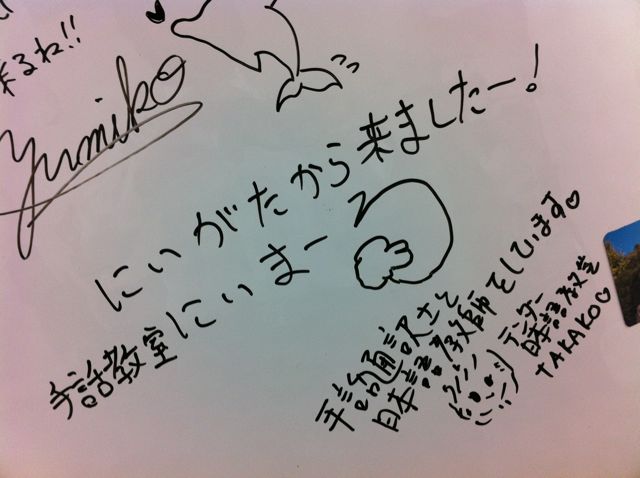 来るね!!
yumiko
にいがたから来ましたー!
手話教室にいまー
手話通訳士と
日本語教師をしています♡
テンダー
日本語教室
TAKAKO♡